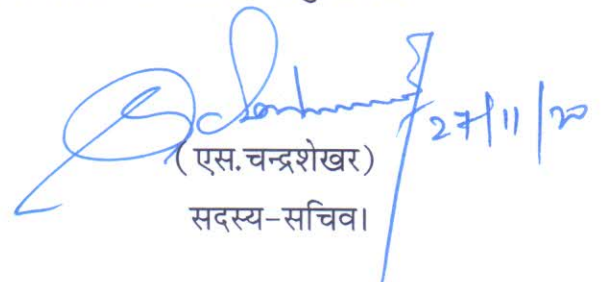 27/11/20
(एस.चन्द्रशेखर)
सदस्य-सचिव।